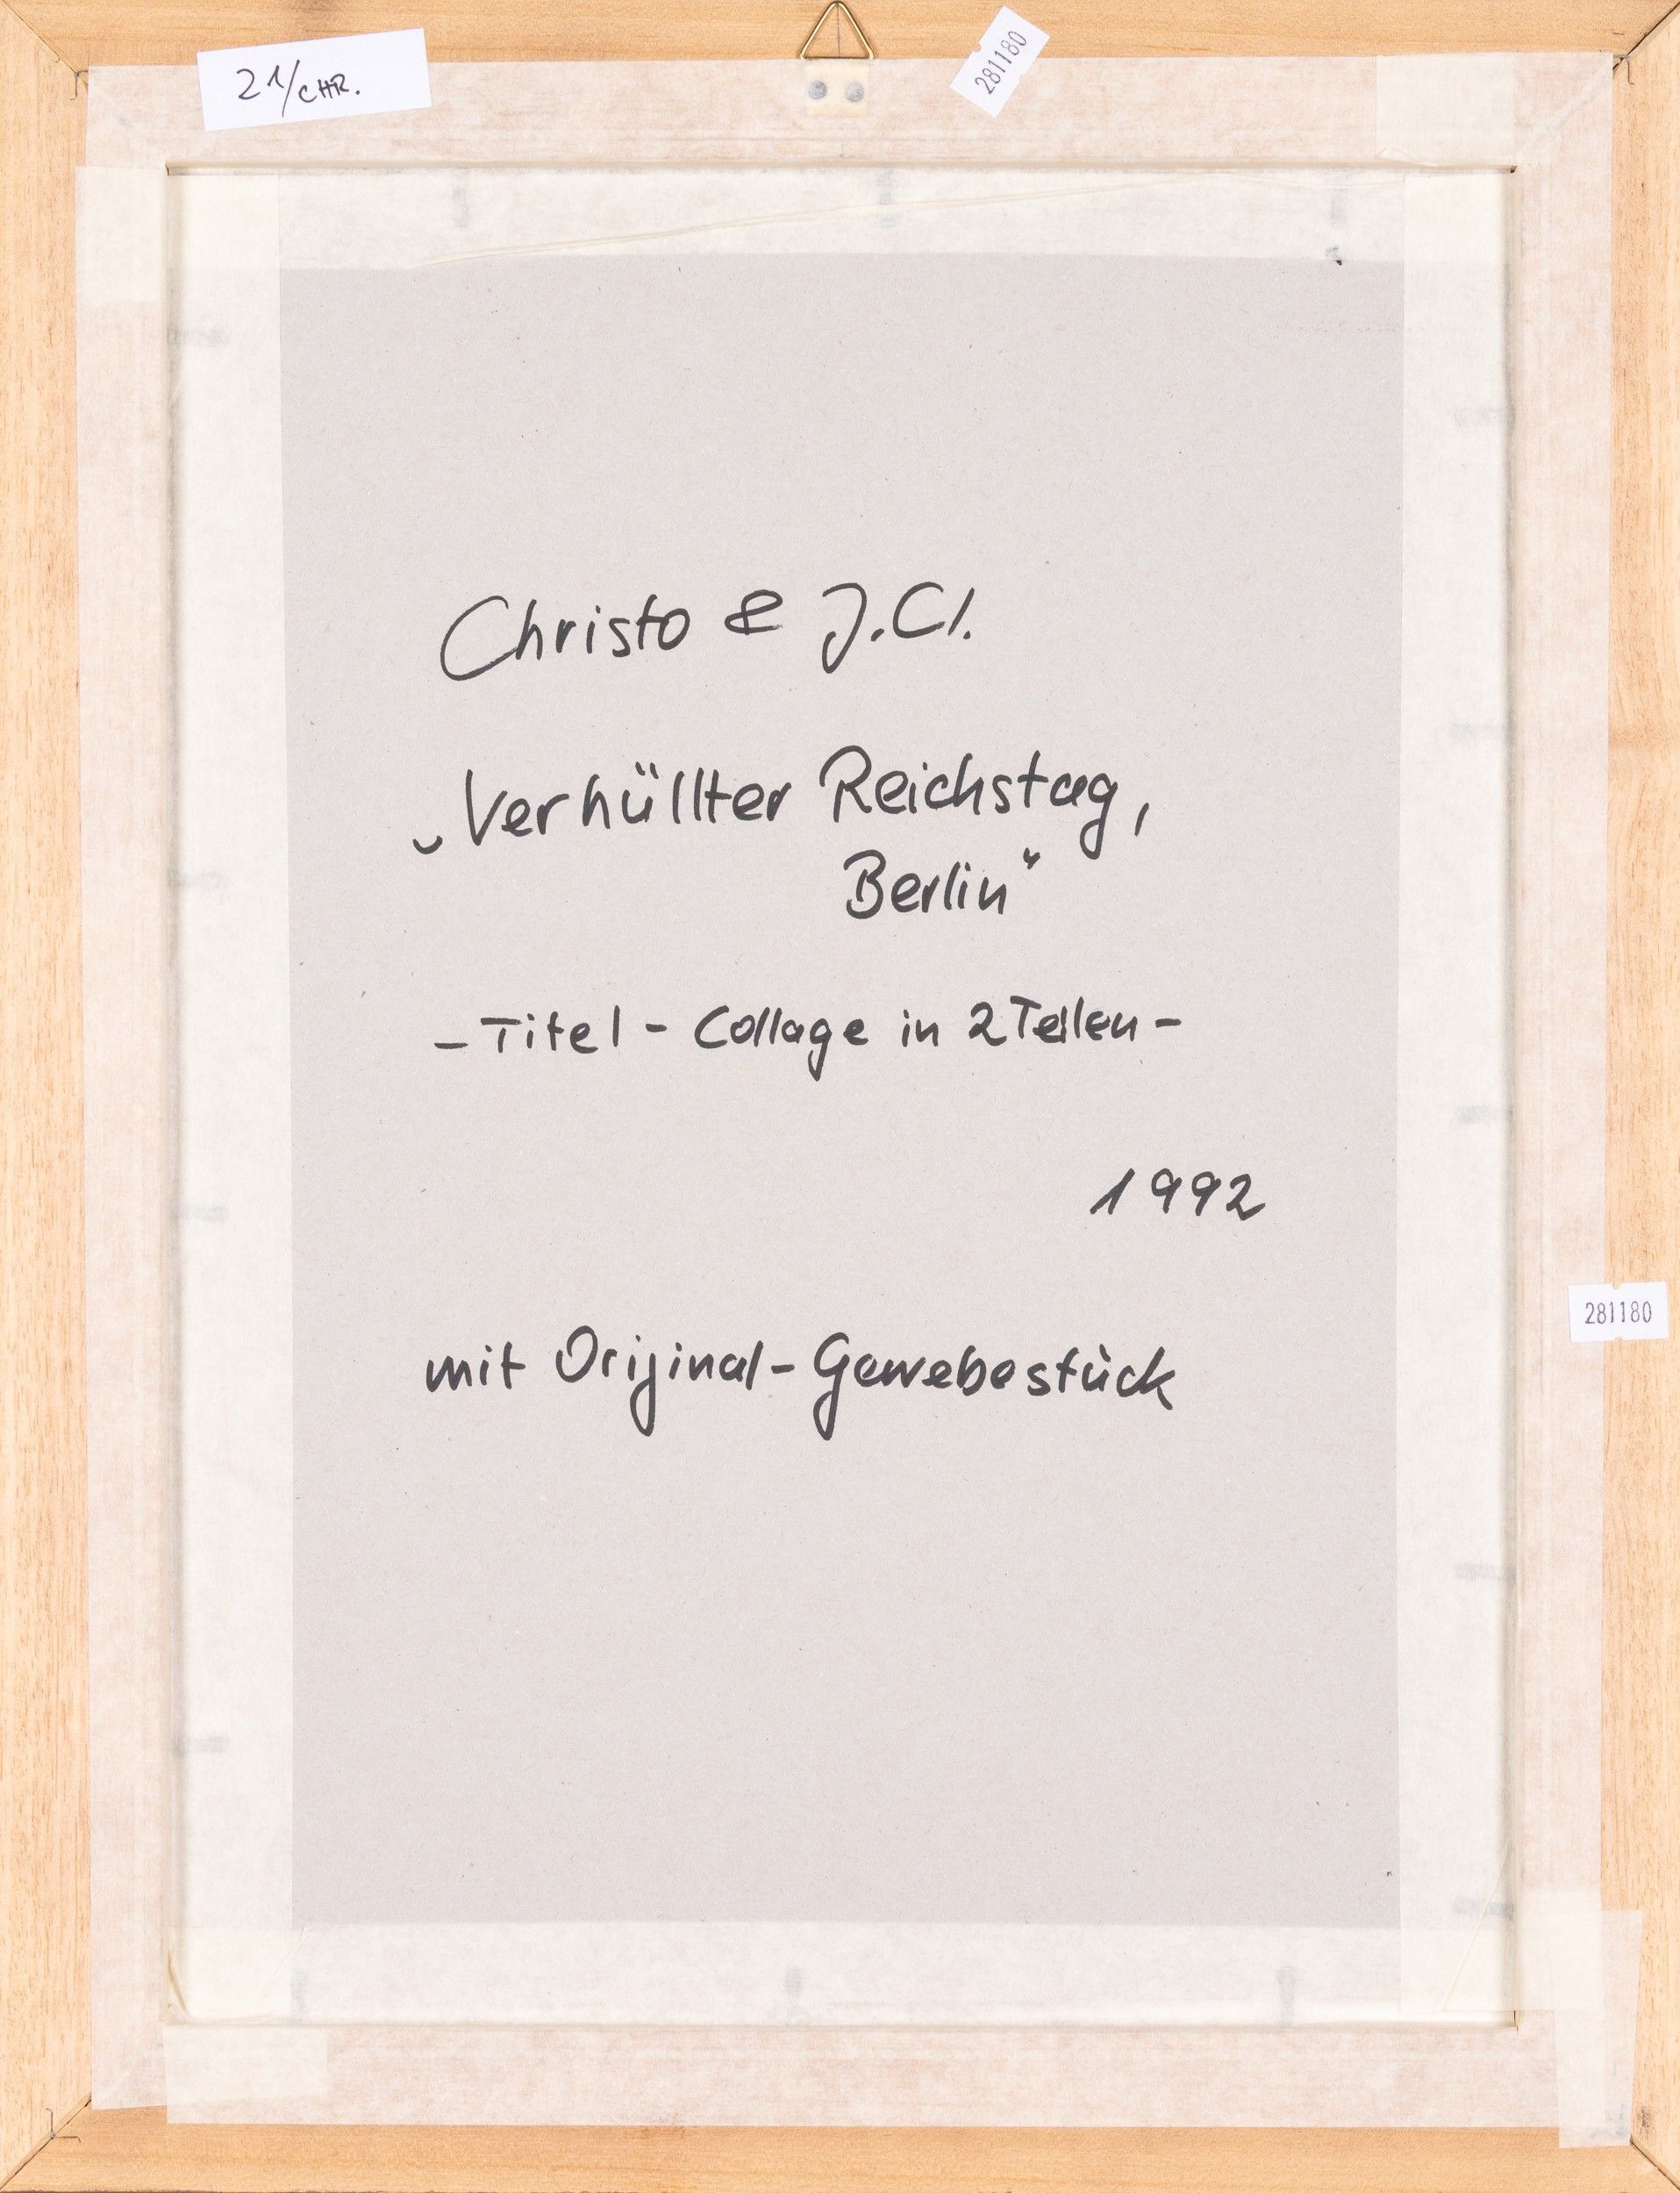 21/CHR.
281180
Christo & J.Cl.
„Verhüllter Reichstag,
Berlin“
- Titel - Collage in 2 Teilen -
1992
281180
mit Original-Gewebestück